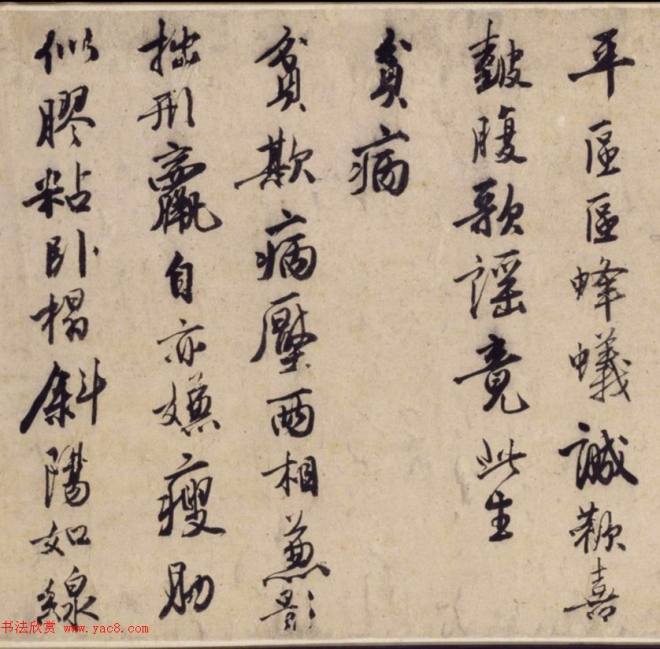 平區區蜂蟻誠歡喜
鼓腹歌謡竟此生
貧病
貧欺病壓兩相兼影
拙形羸自亦嫌瘦肋
似膠粘卧榻斜陽如線
书法欣赏 www.yac8.com